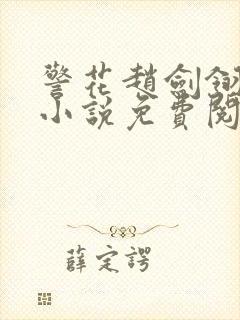 警花趙劍翎
小說免費閱
薛定諤